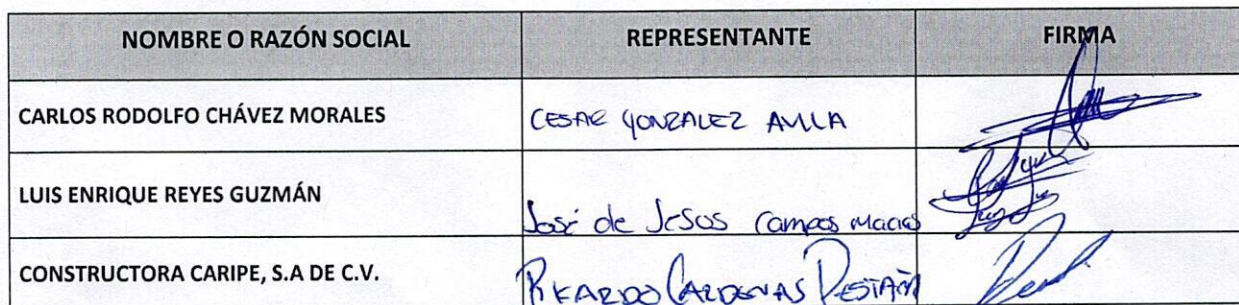 NOMBRE O RAZÓN SOCIAL REPRESENTANTE FIRMA
CARLOS RODOLFO CHÁVEZ MORALES CESAR GONZALEZ AVILA
LUIS ENRIQUE REYES GUZMÁN José de Jesus Campos Macias
CONSTRUCTORA CARIPE, S.A DE C.V. RICARDO CARDENAS